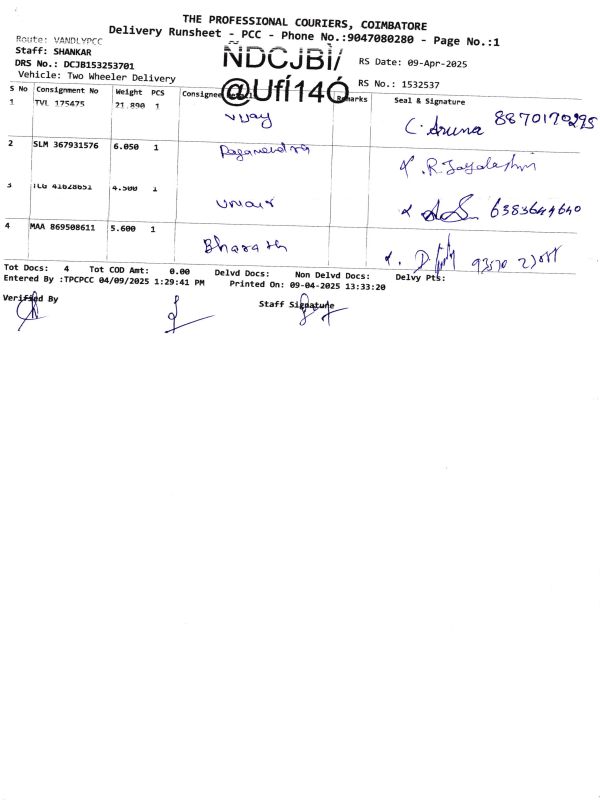 THE PROFESSIONAL COURIERS, COIMBATORE
Delivery Runsheet - PCC - Phone No.:9047080280 - Page No.:1
Route: VANDLYPCC
Staff: SHANKAR
DRS No.: DCJB153253701
Vehicle: Two Wheeler Delivery
ÑDCJBÌ/
@UfÍ14Ó
RS Date: 09-Apr-2025
RS No.: 1532537
S No Consignment No Weight PCS Consignee Details Remarks Seal & Signature
1 TVL 175475 21.890 1 Vijay C. Aruna 8870170295
2 SLM 367931576 6.050 1 R. Jayalakshmi
3 TCG 41628651 4.500 1 6383644640
4 MAA 869508611 5.600 1 Bharath
Tot Docs: 4 Tot COD Amt: 0.00 Delvd Docs: Non Delvd Docs: Delvy Pts:
Entered By :TPCPCC 04/09/2025 1:29:41 PM Printed On: 09-04-2025 13:33:20
Verified By Staff Signature